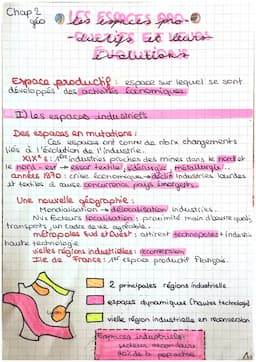 Chap 2
géo
Les espaces pro-
-ductifs et leurs
évolutions
Espace productif : espace sur lequel se sont
développés des activités économiques.
I) les espaces industriels
Des espaces en mutations :
Ces espaces ont connu de nbrx changements
liés à l'évolution de l'industrie.
XIXe s : 1ères industries proches des mines dans le nord et
le nord-est → essor textile, sidérurgie, métallurgie...
années 1970 : crise économique → déclin industries lourdes
et textiles à cause concurrence pays émergents.
Une nouvelle géographie :
Mondialisation → délocalisation industries.
Nvx facteurs localisation : proximité main d'œuvre quali,
transports, un cadre de vie agréable.
métropoles Sud et Ouest : attirent technopoles + indus
haute technologie
vielles régions industrielles : reconversion
Ile de France : 1er espace productif français.
2 principales régions industrielle
espaces dynamiques (hautes technologie)
vielle région industrielle en reconversion
Espaces industriels :
secteur secondaire